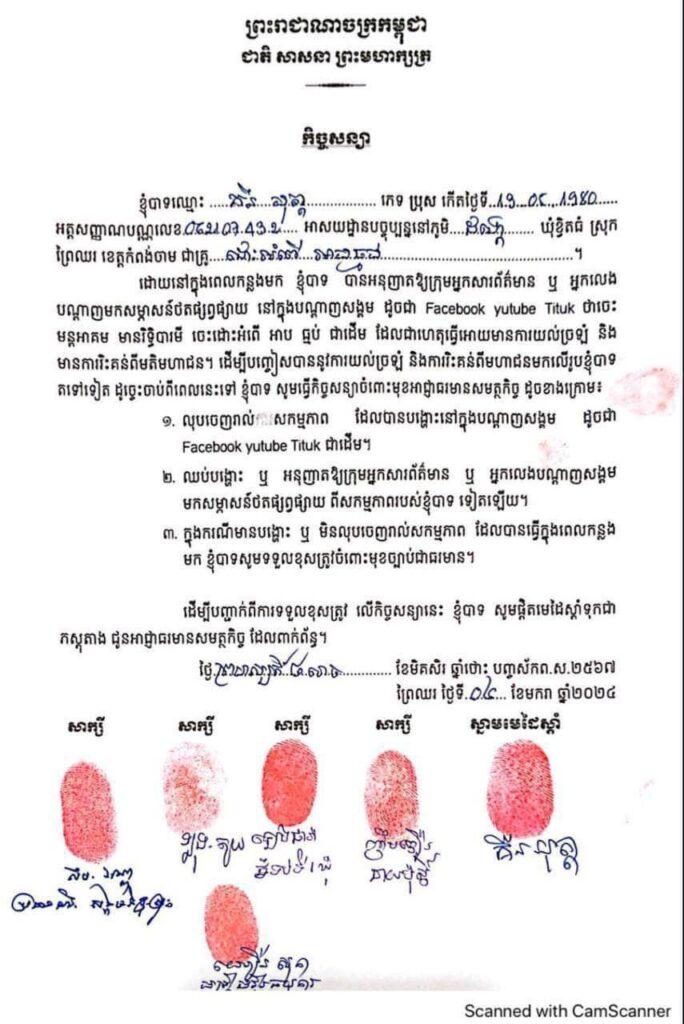 ព្រះរាជាណាចក្រកម្ពុជា
ជាតិ សាសនា ព្រះមហាក្សត្រ
កិច្ចសន្យា
ខ្ញុំបាទឈ្មោះ ភេទ ប្រុស កើតថ្ងៃទី
អត្តសញ្ញាណបណ្ណលេខ អាសយដ្ឋានបច្ចុប្បន្ននៅភូមិ ឃុំខ្វិតធំ ស្រុក
ព្រៃឈរ ខេត្តកំពង់ចាម ជាគ្រូ ។
ដោយនៅក្នុងពេលកន្លងមក ខ្ញុំបាទ បានអនុញាតឱ្យក្រុមអ្នកសារព័ត៌មាន ឬ អ្នកលេង
បណ្តាញមកសម្ភាសន៍ថតផ្សព្វផ្សាយ នៅក្នុងបណ្តាញសង្គម ដូចជា Facebook yutube Tituk ថាចេះ
មន្តអាគម មានរិទ្ធិបារមី ចេះដោះអំពើ អាប ធ្មប់ ជាដើម ដែលជាហេតុធ្វើអោយមានការយល់ច្រឡំ និង
មានការរិះគន់ពីមតិមហាជន។ ដើម្បីបញ្ចៀសបាននូវការយល់ច្រឡំ និងការរិះគន់ពីមហាជនមកលើរូបខ្ញុំបាទ
តទៅទៀត ដូច្នេះចាប់ពីពេលនេះទៅ ខ្ញុំបាទ សូមធ្វើកិច្ចសន្យាចំពោះមុខអាជ្ញាធរមានសមត្ថកិច្ច ដូចខាងក្រោម៖
១. លុបចេញរាល់ សកម្មភាព ដែលបានបង្ហោះនៅក្នុងបណ្តាញសង្គម ដូចជា
Facebook yutube Tituk ជាដើម។
២. ឈប់បង្ហោះ ឬ អនុញាតឱ្យក្រុមអ្នកសារព័ត៌មាន ឬ អ្នកលេងបណ្តាញសង្គម
មកសម្ភាសន៍ថតផ្សព្វផ្សាយ ពីសកម្មភាពរបស់ខ្ញុំបាទ ទៀតឡើយ។
៣. ក្នុងករណីមានបង្ហោះ ឬ មិនលុបចេញរាល់សកម្មភាព ដែលបានធ្វើក្នុងពេលកន្លង
មក ខ្ញុំបាទសូមទទួលខុសត្រូវចំពោះមុខច្បាប់ជាធរមាន។
ដើម្បីបញ្ជាក់ពីការទទួលខុសត្រូវ លើកិច្ចសន្យានេះ ខ្ញុំបាទ សូមផ្តិតមេដៃស្តាំទុកជា
ភស្តុតាង ជូនអាជ្ញាធរមានសមត្ថកិច្ច ដែលពាក់ព័ន្ធ។
ថ្ងៃ ខែមិគសិរ ឆ្នាំថោះ បញ្ចស័កព.ស.២៥៦៧
ព្រៃឈរ ថ្ងៃទី 04 ខែមករា ឆ្នាំ២០២៤
សាក្សី សាក្សី សាក្សី សាក្សី ស្នាមមេដៃស្តាំ
Scanned with CamScanner